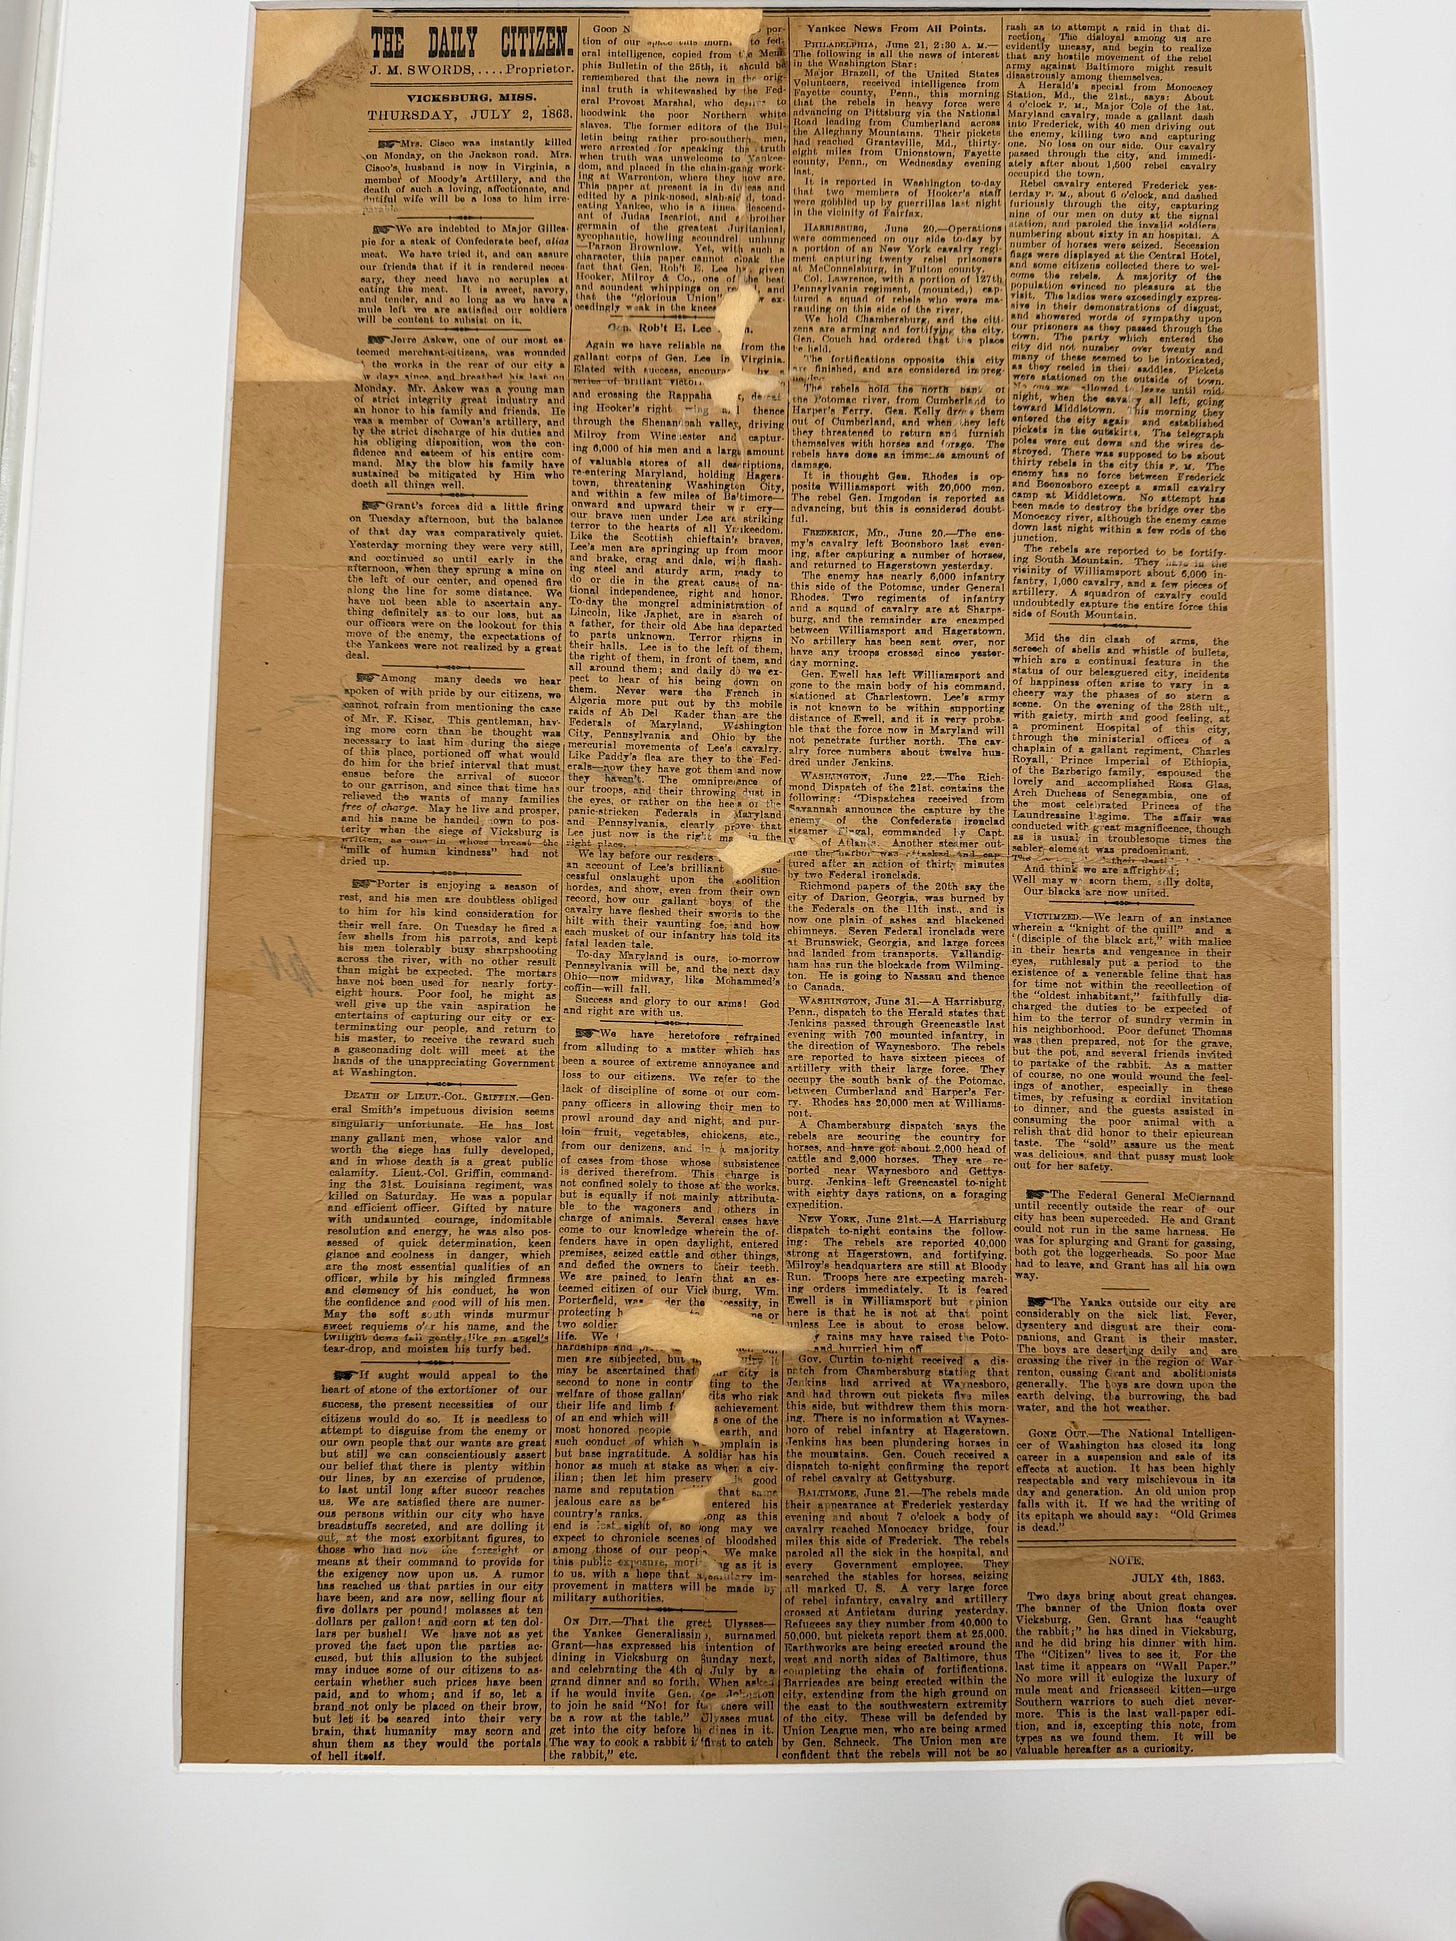 THE DAILY CITIZEN.
J. M. SWORDS,....Proprietor.
VICKSBURG, MISS.
THURSDAY, JULY 2, 1863.
Mrs. Cisco was instantly killed
on Monday, on the Jackson road. Mrs.
Cisco's husband is now in Virginia, a
member of Moody's Artillery, and the
death of such a loving, affectionate, and
dutiful wife will be a loss to him irre-
parable.
We are indebted to Major Gilles-
pie for a steak of Confederate beef, alias
meat. We have tried it, and can assure
our friends that if it is rendered neces-
sary, they need have no scruples a
eating the meat. It is sweet, savory,
and tender, and so long as we have a
mule left we are satisfied our soldiers
will be content to subsist on it.
Jerre Askew, one of our most es-
teemed merchant-citizens, was wounded
the works in the rear of our city a
w days since, and breathed his last on
Monday. Mr. Askew was a young man
of strict integrity great industry and
an honor to his family and friends. He
was a member of Cowan's artillery, and
by the strict discharge of his duties and
his obliging disposition, won the con-
fidence and esteem of his entire com-
mand. May the blow his family have
sustained be mitigated by Him who
doeth all things well.
Grant's forces did a little firing
on Tuesday afternoon, but the balance
of that day was comparatively quiet.
Yesterday morning they were very still,
and continued so until early in the
afternoon, when they sprung a mine on
the left of our center, and opened fire
along the line for some distance. We
have not been able to ascertain any-
thing definitely as to our loss, but as
our officers were on the lookout for this
move of the enemy, the expectations of
the Yankees were not realized by a great
deal.
Among many deeds we hear
spoken of with pride by our citizens, we
cannot refrain from mentioning the case
of Mr. F. Kiser. This gentleman, hav-
ing more corn than he thought was
necessary to last him during the siege
of this place, portioned off what would
do him for the brief interval that must
ensue before the arrival of succor
to our garrison, and since that time has
relieved the wants of many families
free of charge. May he live and prosper,
and his name be handed down to pos-
terity when the siege of Vicksburg is
written, as one in whose breast the
"milk of human kindness" had not
dried up.
Porter is enjoying a season of
rest, and his men are doubtless obliged
to him for his kind consideration for
their well fare. On Tuesday he fired a
few shells from his parrots, and kept
his men tolerably busy sharpshooting
across the river, with no other result
than might be expected. The mortars
have not been used for nearly forty-
eight hours. Poor fool, he might as
well give up the vain aspiration he
entertains of capturing our city or ex-
terminating our people, and return to
his master, to receive the reward such
a gasconading dolt will meet at the
hands of the unappreciating Government
at Washington.
DEATH OF LIEUT.-COL. GRIFFIN.—Gen-
eral Smith's impetuous division seems
singularly unfortunate. He has lost
many gallant men, whose valor and
worth the siege has fully developed,
and in whose death is a great public
calamity. Lieut.-Col. Griffin, command-
ing the 31st. Louisiana regiment, was
killed on Saturday. He was a popular
and efficient officer. Gifted by nature
with undaunted courage, indomitable
resolution and energy, he was also pos-
sessed of quick determination, keen
glance and coolness in danger, which
are the most essential qualities of an
officer, while by his mingled firmness
and clemency of his conduct, he won
the confidence and good will of his men.
May the soft south winds murmur
sweet requiems o'er his name, and the
twilight dews fall gently like an angel's
tear-drop, and moisten his turfy bed.
If aught would appeal to the
heart of stone of the extortioner of our
success, the present necessities of our
citizens would do so. It is needless to
attempt to disguise from the enemy or
our own people that our wants are great
but still we can conscientiously assert
our belief that there is plenty within
our lines, by an exercise of prudence,
to last until long after succor reaches
us. We are satisfied there are numer-
ous persons within our city who have
breadstuffs secreted, and are dolling it
out, at the most exorbitant figures, to
those who had not the foresight or
means at their command to provide for
the exigency now upon us. A rumor
has reached us that parties in our city
have been, and are now, selling flour at
five dollars per pound! molasses at ten
dollars per gallon! and corn at ten dol-
lars per bushel! We have not as yet
proved the fact upon the parties ac-
cused, but this allusion to the subject
may induce some of our citizens to as-
certain whether such prices have been
paid, and to whom; and if so, let a
brand not only be placed on their brow,
but let it be seared into their very
brain, that humanity may scorn and
shun them as they would the portals
of hell itself.
GOOD N por-
tion of our space this morn to fed-
eral intelligence, copied from the Mem-
phis Bulletin of the 25th, it should be
remembered that the news in the orig-
inal truth is whitewashed by the Fed-
eral Provost Marshal, who desires to
hoodwink the poor Northern white
slaves. The former editors of the Bul-
letin being rather pro-southern men,
were arrested for speaking the truth
when truth was unwelcome to Yankee-
dom, and placed in the chain-gang work-
ing at Warrenton, where they now are.
This paper at present is in duress and
edited by a pink-nosed, slab-sided, toad-
eating Yankee, who is a lineal descend-
ant of Judas Iscariot, and a brother
germain of the greatest Juritanical,
sycophantic, howling scoundrel unhung
—Parson Brownlow. Yet, with such a
character, this paper cannot cloak the
fact that Gen. Rob't E. Lee has given
Hooker, Milroy & Co., one of the best
and soundest whippings on re
that the "glorious Union" ex-
ceedingly weak in the knees
Gen. Rob't E. Lee n.
Again we have reliable ne from the
gallant corps of Gen. Lee in Virginia.
Elated with success, encourag by a
series of brilliant victori
and crossing the Rappaha defeat-
ing Hooker's right wing and thence
through the Shenandoah valley, driving
Milroy from Winchester and captur-
ing 6,000 of his men and a large amount
of valuable stores of all descriptions,
re-entering Maryland, holding Hagers-
town, threatening Washington City,
and within a few miles of Baltimore—
onward and upward their war cry—
our brave men under Lee are striking
terror to the hearts of all Yankeedom.
Like the Scottish chieftain's braves,
Lee's men are springing up from moor
and brake, crag and dale, with flash-
ing steel and sturdy arm, ready to
do or die in the great cause of na-
tional independence, right and honor.
To-day the mongrel administration of
Lincoln, like Japhet, are in search of
a father, for their old Abe has departed
to parts unknown. Terror reigns in
their halls. Lee is to the left of them,
the right of them, in front of them, and
all around them; and daily do we ex-
pect to hear of his being down on
them. Never were the French in
Algeria more put out by the mobile
raids of Ab Del Kader than are the
Federals of Maryland, Washington
City, Pennsylvania and Ohio by the
mercurial movements of Lee's cavalry.
Like Paddy's flea are they to the Fed-
erals—now they have got them and now
they haven't. The omnipresence of
our troops, and their throwing dust in
the eyes, or rather on the heels of the
panic-stricken Federals in Maryland
and Pennsylvania, clearly prove that
Lee just now is the right man in the
right place.
We lay before our readers
an account of Lee's brilliant suc-
cessful onslaught upon the abolition
hordes, and show, even from their own
record, how our gallant boys of the
cavalry have fleshed their swords to the
hilt with their vaunting foe, and how
each musket of our infantry has told its
fatal leaden tale.
To-day Maryland is ours, to-morrow
Pennsylvania will be, and the next day
Ohio—now midway, like Mohammed's
coffin—will fall.
Success and glory to our arms! God
and right are with us.
We have heretofore refrained
from alluding to a matter which has
been a source of extreme annoyance and
loss to our citizens. We refer to the
lack of discipline of some of our com-
pany officers in allowing their men to
prowl around day and night, and pur-
loin fruit, vegetables, chickens, etc.,
from our denizens, and in a majority
of cases from those whose subsistence
is derived therefrom. This charge is
not confined solely to those at the works,
but is equally if not mainly attributa-
ble to the wagoners and others in
charge of animals. Several cases have
come to our knowledge wherein the of-
fenders have in open daylight, entered
premises, seized cattle and other things,
and defied the owners to their teeth.
We are pained to learn that an es-
teemed citizen of our Vicksburg, Wm.
Porterfield, was under the necessity, in
protecting h one or
two soldier
life. We
hardships and our
men are subjected, but
may be ascertained that our city is
second to none in contributing to the
welfare of those gallant spirits who risk
their life and limb f achievement
of an end which will us one of the
most honored people earth, and
such conduct of which we complain is
but base ingratitude. A soldier has his
honor as much at stake as when a civ-
ilian; then let him preserve his good
name and reputation that same
jealous care as bef entered his
country's ranks. long as this
end is lost sight of, so long may we
expect to chronicle scenes of bloodshed
among those of our people. We make
this public exposure, mortifying as it is
to us, with a hope that a salutary im-
provement in matters will be made by
military authorities.
ON DIT.—That the great Ulysses—
the Yankee Generalissimo, surnamed
Grant—has expressed his intention of
dining in Vicksburg on Sunday next,
and celebrating the 4th of July by a
grand dinner and so forth. When asked
if he would invite Gen. Joe Johnston
to join he said "No! for fear there will
be a row at the table." Ulysses must
get into the city before he dines in it.
The way to cook a rabbit is "first to catch
the rabbit," etc.
Yankee News From All Points.
PHILADELPHIA, June 21, 2:30 A. M.—
The following is all the news of interest
in the Washington Star:
Major Brazell, of the United States
Volunteers, received intelligence from
Fayette county, Penn., this morning
that the rebels in heavy force were
advancing on Pittsburg via the National
Road leading from Cumberland across
the Alleghany Mountains. Their pickets
had reached Grantsville, Md., thirty-
eight miles from Uniontown, Fayette
county, Penn., on Wednesday evening
last.
It is reported in Washington to-day
that two members of Hooker's staff
were gobbled up by guerrillas last night
in the vicinity of Fairfax.
HARRISBURG, June 20.—Operations
were commenced on our side to-day by
a portion of an New York cavalry regi-
ment capturing twenty rebel prisoners
at McConnelsburg, in Fulton county.
Col. Lawrence, with a portion of 127th
Pennsylvania regiment, (mounted,) cap-
tured a squad of rebels who were ma-
rauding on this side of the river.
We hold Chambersburg, and the citi-
zens are arming and fortifying the city.
Gen. Couch had ordered that the place
be held.
The fortifications opposite this city
are finished, and are considered impreg-
nable.
The rebels hold the north bank of
the Potomac river, from Cumberland to
Harper's Ferry. Gen. Kelly drove them
out of Cumberland, and when they left
they threatened to return and furnish
themselves with horses and forage. The
rebels have done an immense amount of
damage.
It is thought Gen. Rhodes is op-
posite Williamsport with 20,000 men.
The rebel Gen. Imgoden is reported as
advancing, but this is considered doubt-
ful.
FREDERICK, MD., June 20.—The ene-
my's cavalry left Boonsboro last even-
ing, after capturing a number of horses,
and returned to Hagerstown yesterday.
The enemy has nearly 6,000 infantry
this side of the Potomac, under General
Rhodes. Two regiments of infantry
and a squad of cavalry are at Sharps-
burg, and the remainder are encamped
between Williamsport and Hagerstown.
No artillery has been sent over, nor
have any troops crossed since yester-
day morning.
Gen. Ewell has left Williamsport and
gone to the main body of his command,
stationed at Charlestown. Lee's army
is not known to be within supporting
distance of Ewell, and it is very proba-
ble that the force now in Maryland will
not penetrate further north. The cav-
alry force numbers about twelve hun-
dred under Jenkins.
WASHINGTON, June 22.—The Rich-
mond Dispatch of the 21st. contains the
following: "Dispatches received from
Savannah announce the capture by the
enemy of the Confederate ironclad
steamer Fingal, commanded by Capt.
of Atlanta. Another steamer out-
side the harbor was attacked and cap-
tured after an action of thirty minutes
by two Federal ironclads.
Richmond papers of the 20th say the
city of Darion, Georgia, was burned by
the Federals on the 11th inst., and is
now one plain of ashes and blackened
chimneys. Seven Federal ironclads were
at Brunswick, Georgia, and large forces
had landed from transports. Vallandig-
ham has run the blockade from Wilming-
ton. He is going to Nassau and thence
to Canada.
WASHINGTON, June 31.—A Harrisburg,
Penn., dispatch to the Herald states that
Jenkins passed through Greencastle last
evening with 760 mounted infantry, in
the direction of Waynesboro. The rebels
are reported to have sixteen pieces of
artillery with their large force. They
occupy the south bank of the Potomac.
between Cumberland and Harper's Fer-
ry. Rhodes has 20,000 men at Williams-
port.
A Chambersburg dispatch says the
rebels are scouring the country for
horses, and have got about 2,000 head of
cattle and 2,000 horses. They are re-
ported near Waynesboro and Gettys-
burg. Jenkins left Greencastel to-night
with eighty days rations, on a foraging
expedition.
NEW YORK, June 21st.—A Harrisburg
dispatch to-night contains the follow-
ing: The rebels are reported 40,000
strong at Hagerstown, and fortifying.
Milroy's headquarters are still at Bloody
Run. Troops here are expecting march-
ing orders immediately. It is feared
Ewell is in Williamsport but opinion
here is that he is not at that point
unless Lee is about to cross below.
rains may have raised the Poto-
and hurried him off
Gov. Curtin to-night received a dis-
patch from Chambersburg stating that
Jenkins had arrived at Waynesboro,
and had thrown out pickets five miles
this side, but withdrew them this morn-
ing. There is no information at Waynes-
boro of rebel infantry at Hagerstown.
Jenkins has been plundering horses in
the mountains. Gen. Couch received a
dispatch to-night confirming the report
of rebel cavalry at Gettysburg.
BALTIMORE, June 21.—The rebels made
their appearance at Frederick yesterday
evening and about 7 o'clock a body of
cavalry reached Monocacy bridge, four
miles this side of Frederick. The rebels
paroled all the sick in the hospital, and
every Government employee. They
searched the stables for horses, seizing
all marked U. S. A very large force
of rebel infantry, cavalry and artillery
crossed at Antietam during yesterday.
Refugees say they number from 40,000 to
50,000, but pickets report them at 25,000.
Earthworks are being erected around the
west and north sides of Baltimore, thus
completing the chain of fortifications.
Barricades are being erected within the
city, extending from the high ground on
the east to the southwestern extremity
of the city. These will be defended by
Union League men, who are being armed
by Gen. Schneck. The Union men are
confident that the rebels will not be so
rash as to attempt a raid in that di-
rection. The disloyal among us are
evidently uneasy, and begin to realize
that any hostile movement of the rebel
army against Baltimore might result
disastrously among themselves.
A Herald's special from Monocacy
Station, Md., the 21st., says: About
4 o'clock P. M., Major Cole of the 1st.
Maryland cavalry, made a gallant dash
into Frederick, with 40 men driving out
the enemy, killing two and capturing
one. No loss on our side. Our cavalry
passed through the city, and immedi-
ately after about 1,500 rebel cavalry
occupied the town.
Rebel cavalry entered Frederick yes-
terday P. M., about 6 o'clock, and dashed
furiously through the city, capturing
nine of our men on duty at the signal
station, and paroled the invalid soldiers,
numbering about sixty in an hospital. A
number of horses were seized. Secession
flags were displayed at the Central Hotel,
and some citizens collected there to wel-
come the rebels. A majority of the
population evinced no pleasure at the
visit. The ladies were exceedingly expres-
sive in their demonstrations of disgust,
and showered words of sympathy upon
our prisoners as they passed through the
town. The party which entered the
city did not number over twenty and
many of these seemed to be intoxicated,
as they reeled in their saddles. Pickets
were stationed on the outside of town.
No one was allowed to leave until mid-
night, when the cavalry all left, going
toward Middletown. This morning they
entered the city again, and established
pickets in the outskirts. The telegraph
poles were cut down and the wires de-
stroyed. There was supposed to be about
thirty rebels in the city this P. M. The
enemy has no force between Frederick
and Boonosboro except a small cavalry
camp at Middletown. No attempt has
been made to destroy the bridge over the
Monocacy river, although the enemy came
down last night within a few rods of the
junction.
The rebels are reported to be fortify-
ing South Mountain. They have in the
vicinity of Williamsport about 6,000 in-
fantry, 1,000 cavalry, and a few pieces of
artillery. A squadron of cavalry could
undoubtedly capture the entire force this
side of South Mountain.
Mid the din clash of arms, the
screech of shells and whistle of bullets,
which are a continual feature in the
status of our beleaguered city, incidents
of happiness often arise to vary in a
cheery way the phases of so stern a
scene. On the evening of the 28th ult.,
with gaiety, mirth and good feeling, at
a prominent Hospital of this city,
through the ministerial offices of a
chaplain of a gallant regiment, Charles
Royall, Prince Imperial of Ethiopia,
of the Barberigo family, espoused the
lovely and accomplished Rosa Glas,
Arch Duchess of Senegambia, one of
the most celebrated Princes of the
Laundressine Regime. The affair was
conducted with great magnificence, though
as is usual in troublesome times the
sabler element was predominant.
And think we are affrighted;
Well may we scorn them, silly dolts,
Our blacks are now united.
VICTIMZED.—We learn of an instance
wherein a "knight of the quill" and a
"(disciple of the black art," with malice
in their hearts and vengeance in their
eyes, ruthlessly put a period to the
existence of a venerable feline that has
for time not within the recollection of
the "oldest inhabitant," faithfully dis-
charged the duties to be expected of
him to the terror of sundry vermin in
his neighborhood. Poor defunct Thomas
was then prepared, not for the grave,
but the pot, and several friends invited
to partake of the rabbit. As a matter
of course, no one would wound the feel-
ings of another, especially in these
times, by refusing a cordial invitation
to dinner, and the guests assisted in
consuming the poor animal with a
relish that did honor to their epicurean
taste. The "sold" assure us the meat
was delicious, and that pussy must look
out for her safety.
The Federal General McClernand
until recently outside the rear of our
city has been superceded. He and Grant
could not run in the same harness. He
was for splurging and Grant for gassing,
both got the loggerheads. So poor Mac
had to leave, and Grant has all his own
way.
The Yanks outside our city are
considerably on the sick list. Fever,
dysentery and disgust are their com-
panions, and Grant is their master.
The boys are deserting daily and are
crossing the river in the region of War-
renton, cussing Grant and abolitionists
generally. The boys are down upon the
earth delving, the burrowing, the bad
water, and the hot weather.
GONE OUT.—The National Intelligen-
cer of Washington has closed its long
career in a suspension and sale of its
effects at auction. It has been highly
respectable and very mischievous in its
day and generation. An old union prop
falls with it. If we had the writing of
its epitaph we should say: "Old Grimes
is dead."
NOTE.
JULY 4th, 1863.
Two days bring about great changes.
The banner of the Union floats over
Vicksburg. Gen. Grant has "caught
the rabbit;" he has dined in Vicksburg,
and he did bring his dinner with him.
The "Citizen" lives to see it. For the
last time it appears on "Wall Paper."
No more will it eulogize the luxury of
mule meat and fricasseed kitten—urge
Southern warriors to such diet never-
more. This is the last wall-paper edi-
tion, and is, excepting this note, from
types as we found them. It will be
valuable hereafter as a curiosity.